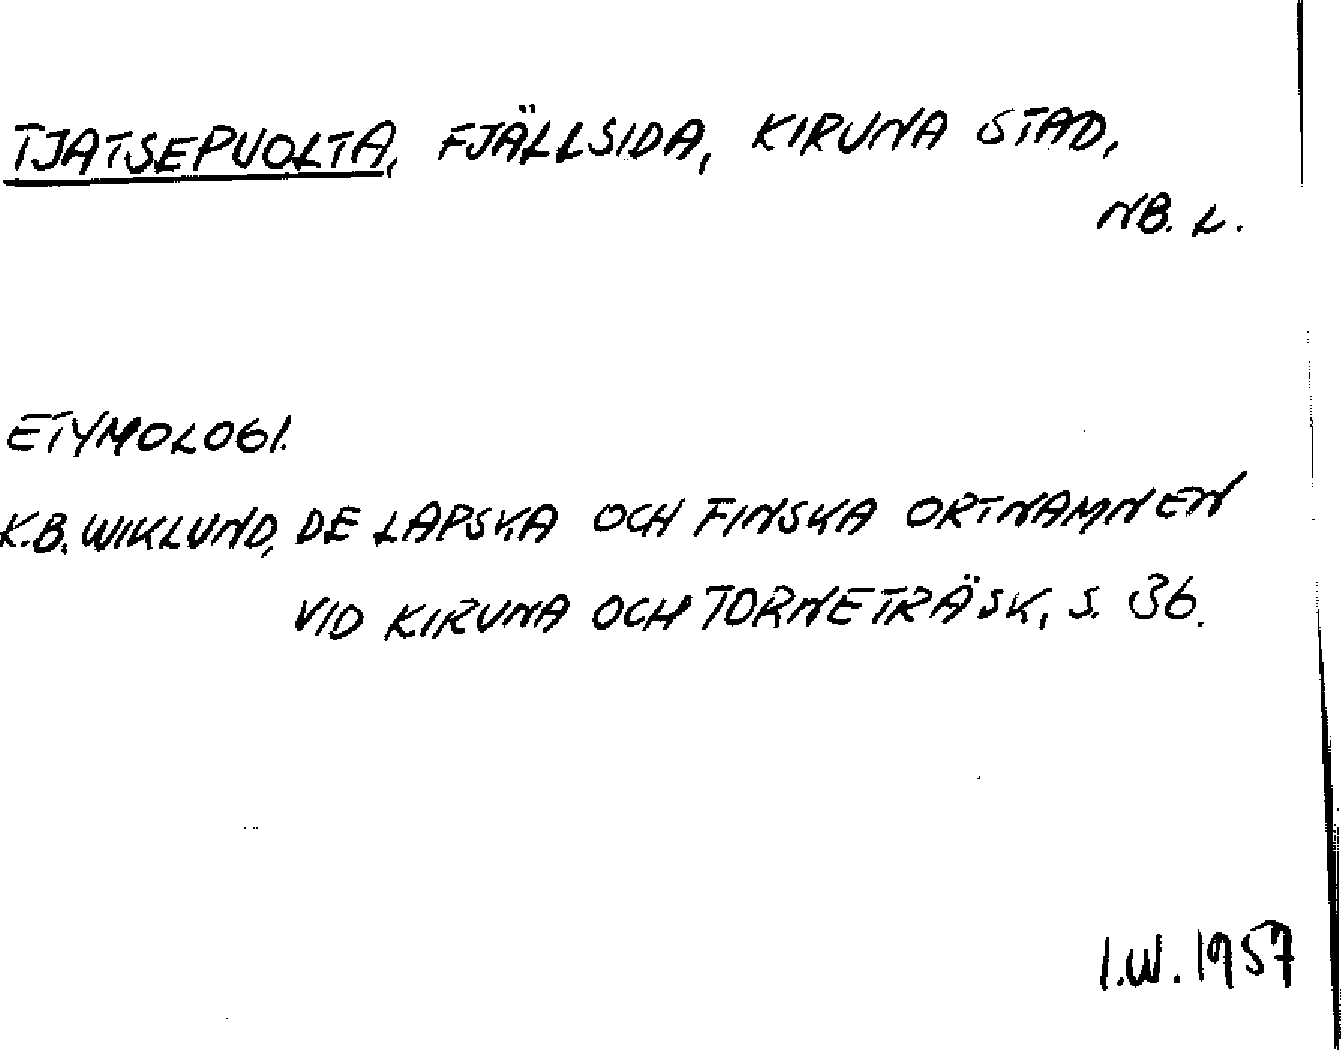 TJATSEPUOLTA, FJÄLLSIDA, KIRUNA STAD,
NB. L.
ETYMOLOGI.
K.B. WIKLUND, DE LAPSKA OCH FINSKA ORTNAMNEN
VID KIRUNA OCH TORNETRÄSK, S. 36.
I.W. 1957